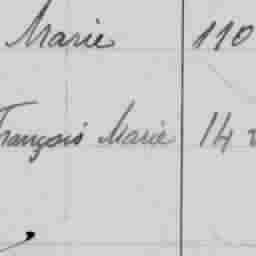 Marie 110
François Marie 14